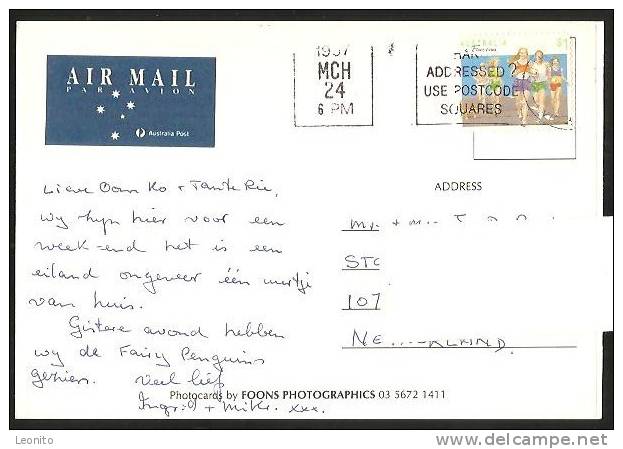 AIR MAIL
PAR AVION
Australia Post
MCH
24
6 PM
ADDRESSED?
USE POSTCODE
SQUARES
AUSTRALIA
$1
Lieve Oom Ko + Tante Rie,
wy zyn hier voor een
week-end het is een
eiland ongeveer één uurtje
van huis.
Gistere avond hebben
wy de Fairy Penguins
gezien. Veel liefs
Ingrid + Mike. xxx.
ADDRESS
107
Photocards by FOONS PHOTOGRAPHICS 03 5672 1411
Leonito
www.delcampe.net